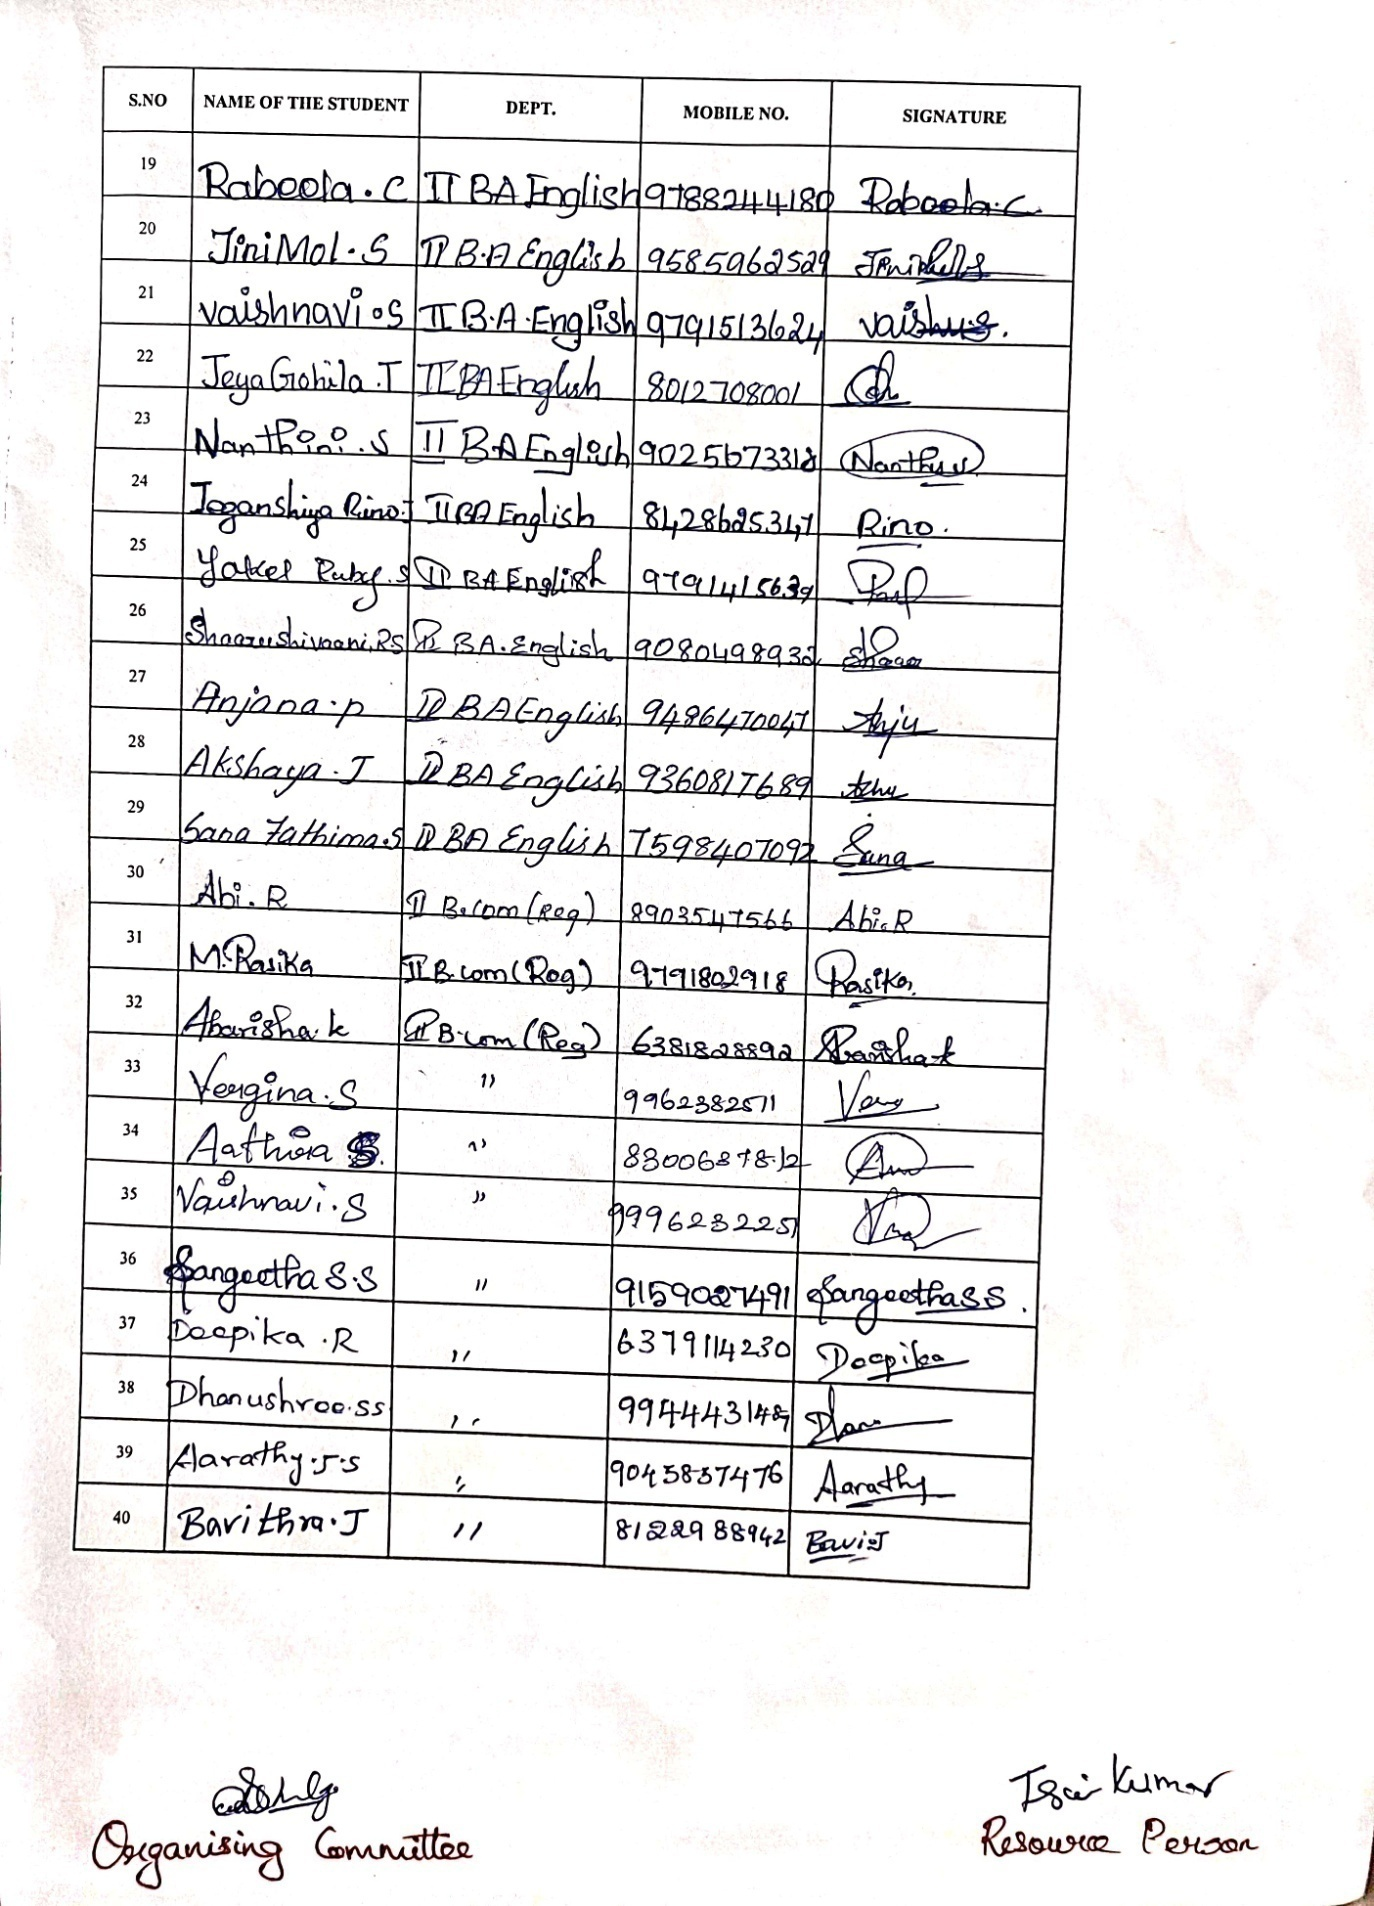 S.NO NAME OF THE STUDENT DEPT. MOBILE NO. SIGNATURE
19 Rabeela.C II BA English 9788244180 Rabeela.C
20 JiniMol.S II B.A English 9585962529
21 vaishnavi.S II B.A.English 9791513624
22 JeyaGohila.T II BA English 8012708001
23 Nanthini.S II BA English 9025673318
24 Joganshiya Rino.J II BA English 8428625347 Rino.
25 Yakel Ruby.S II BA English 9791415639
26 Shaarushivaani.RS II BA.English 9080498932
27 Anjana.p II BA English 9486470047 Anju
28 Akshaya.J II BA English 9360817689
29 Sana Fathima.S II BA English 7598407092 Sana
30 Abi.R II B.com (Reg) 8903547566 Abi.R
31 M.Rasika II B.com (Reg) 9791802918 Rasika.
32 Abarisha.k II B.com (Reg) 6381828892 Abarisha.k
33 Vergina.S " 9962382571
34 Aathira S. " 8300687812
35 Vaishnavi.S " 9996232251
36 Sangeetha S.S " 9159027491 Sangeetha S.S.
37 Deepika.R " 6379114230 Deepika
38 Dhanushree.SS " 9944431487
39 Aarathy.J.S " 9045837476 Aarathy
40 Bavithra.J " 8122988942 Bavi.J
Isai Kumar
Organising Committee Resource Person